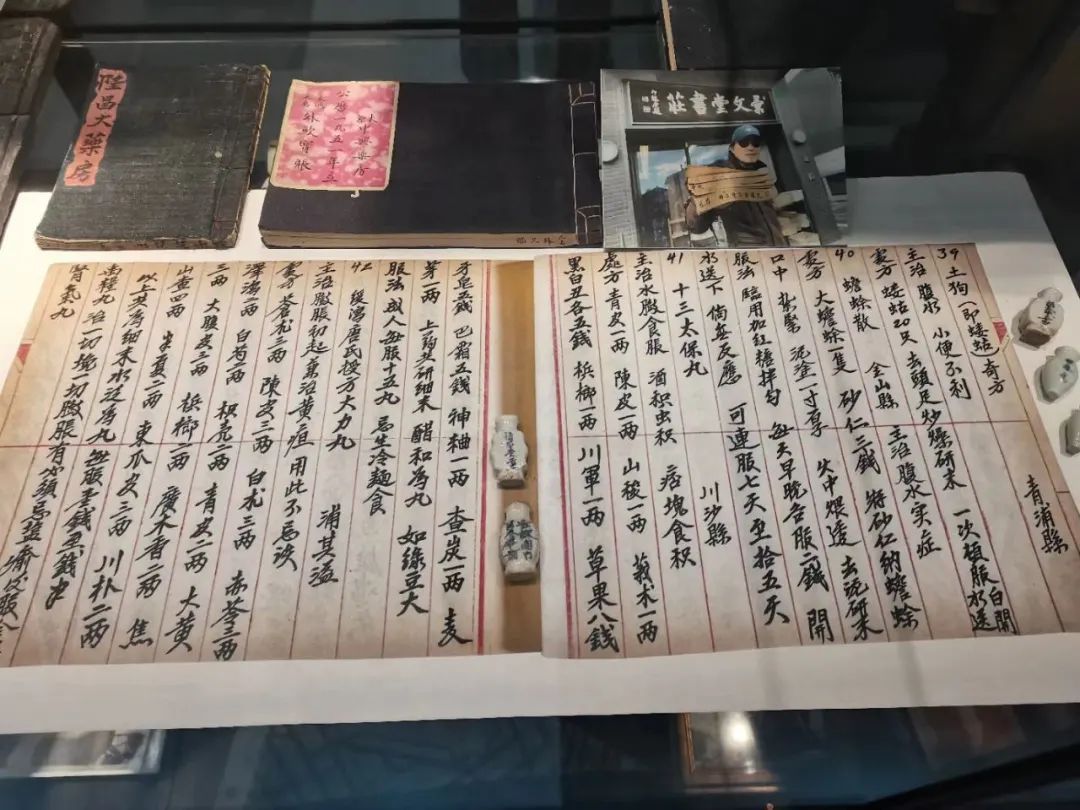 陞昌大藥房
公歷一九五一年立
崇文堂書莊
39 土狗(即蝼蛄)奇方
青浦縣
主治 腹水 小便不利
處方 蝼蛄20只 去頭足炒燥研末 一次頓服白開水送
40 蟾蜍散 金山縣 主治腹水实症
處方 大蟾蜍一隻 砂仁三錢 將砂仁納蟾蜍
口中 紮緊 泥塗一寸厚 火中煨透 去泥研末
服法 臨用加红糖拌匀 每天早晚各服一錢 開
水送下 倘無反應 可連服七天至拾五天
41 十三太保丸 川沙縣
主治水臌食脹 酒积虫积 痞塊食积
處方 青皮一两 陳皮一两 山稜一两 莪术一两
黑白丑各五錢 槟榔一两 川軍一两 草果八錢
牙皂五錢 巴霜五錢 神柚一两 查炭一两 麦
芽一两 上药共研细末 醋和為丸 如綠豆大
服法 成人每服十五丸 忌生冷麵食
42 緩瀉唐氏授方大力丸 浦其溢
主治臌脹初起兼治黄疸用此不忌淡
處方 苍术三两 陳皮三两 白术三两 赤苓三两
澤瀉二两 白芍二两 枳壳二两 青皮一两 大黄
三两 大腹皮三两 槟榔一两 廣木香二两 焦
山查四两 生夏二两 東瓜皮三两 川朴二两
以上共為细末水泛為丸 每服